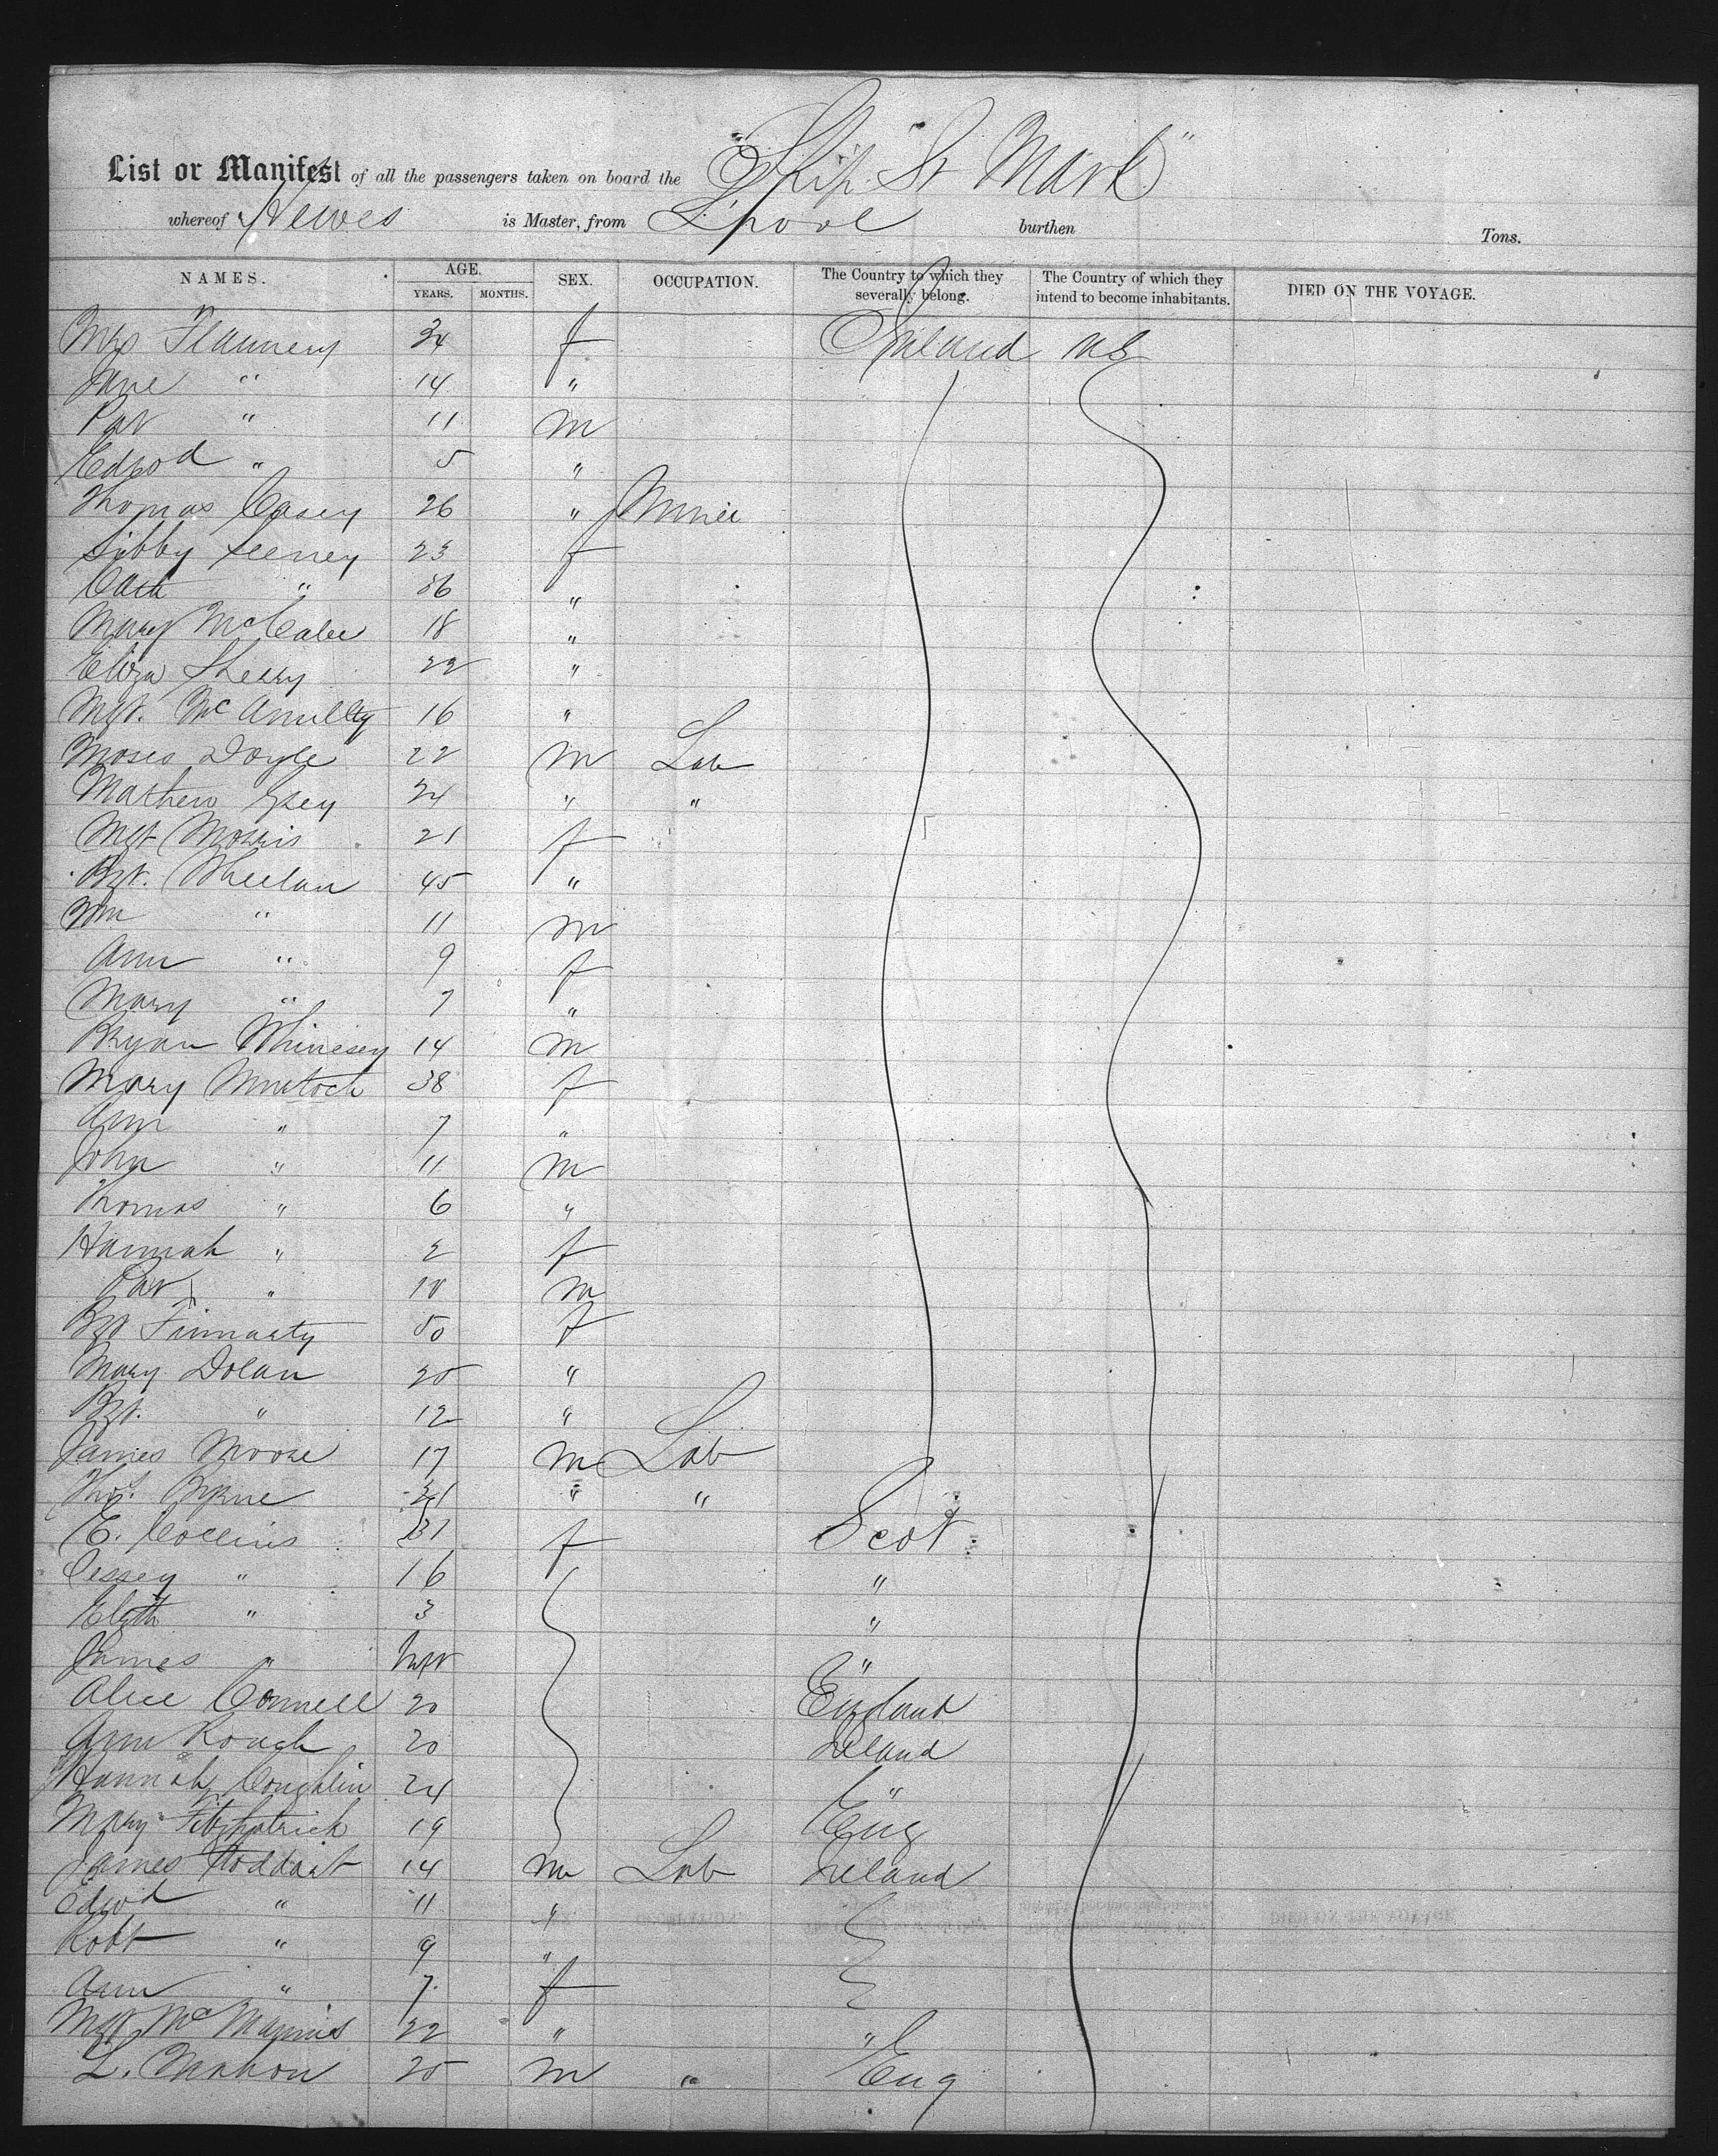 List or Manifest of all the passengers taken on board the "Ship St Mark"
whereof Hewes is Master, from L'pool burthen Tons.
NAMES. AGE. SEX. OCCUPATION. The Country to which they severally belong. The Country of which they intend to become inhabitants. DIED ON THE VOYAGE.
YEARS. MONTHS.
Mrs Flannery 34 f Ireland US
Jane " 14 "
Pat " 11 m
Edwd " 5 "
Thomas Casey 26 " Miner
Sibby Feeney 23 f
Cath " 36 "
Mary McCabe 18 "
Eliza Sherry 22 "
Mgt. McAnulty 16 "
Moses Doyle 22 m Lab
Mathew Grey 24 " "
Mgt Morris 21 f
Bgt. Wheelan 45 "
Wm " 11 m
Ann " 9 f
Mary " 7 "
Bryan 14 m
Mary Murtoch 38 f
Ann " 7 "
John " 11 m
Thomas " 6 "
Hannah " 2 f
Pat " 10 m
Bgt Finnarty 50 f
Mary Dolan 20 "
Bgt. " 12 "
James Moore 17 m Lab
Thos. Byrne 21 " "
E. Collins 31 f Scot
Jessey " 16 "
Elizth " 3 "
James " Inft "
Alice Connell 20 England
Ann Rough 20 Ireland
Hannah Coughlin 24 "
Mary Fitzpatrick 19 Eng
James Stoddart 14 m Lab Ireland
Edwd " 11 "
Robt " 9 "
Ann " 7 f
Mgt McMannus 22 " "
L. Mahon 20 m " Eng